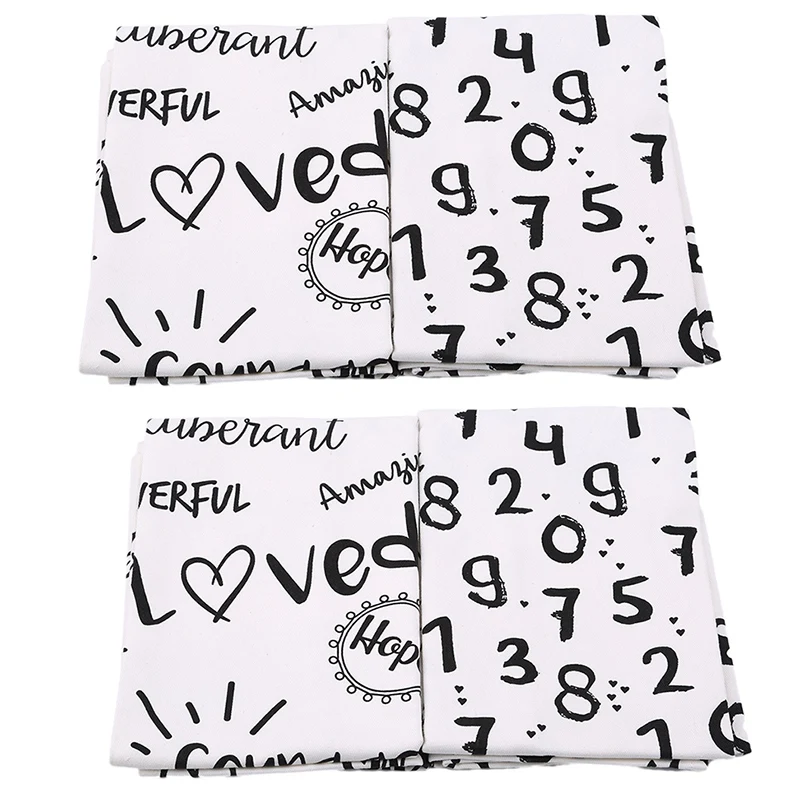 uberant
ERFUL
Amazi
L♡ved
Hop
4
8 2 9
0 7
9 7 5
1 3 8 2
7 1
uberant
ERFUL
Amazi
L♡ved
Hop
4
8 2 9
0 7
9 7 5
1 3 8 2
7 1